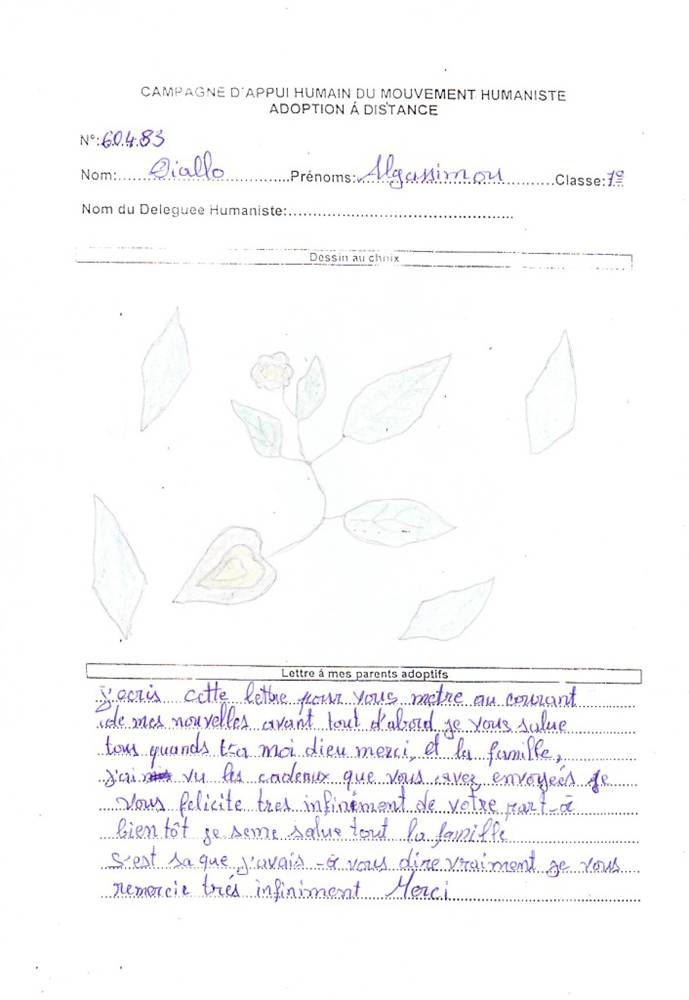 CAMPAGNE D'APPUI HUMAIN DU MOUVEMENT HUMANISTE
ADOPTION Á DISTANCE
N°: 60483
Nom: Diallo Prénoms: Algassimou Classe: 1º
Nom du Deleguee Humaniste:
Dessin au choix
Lettre á mes parents adoptifs
j'ecris cette lettre pour vous metre au courant
de mes nouvelles avant tout d'abord je vous salue
tous quands ta moi dieu merci, et la famille,
j'ai vu les cadeaux que vous avez envoyées Je
vous felicite tres infiniment de votre part-à
bientôt je seme salue tout la famille
s'est sa que j'avais -à vous dire vraiment je vous
remercie trés infiniment Merci